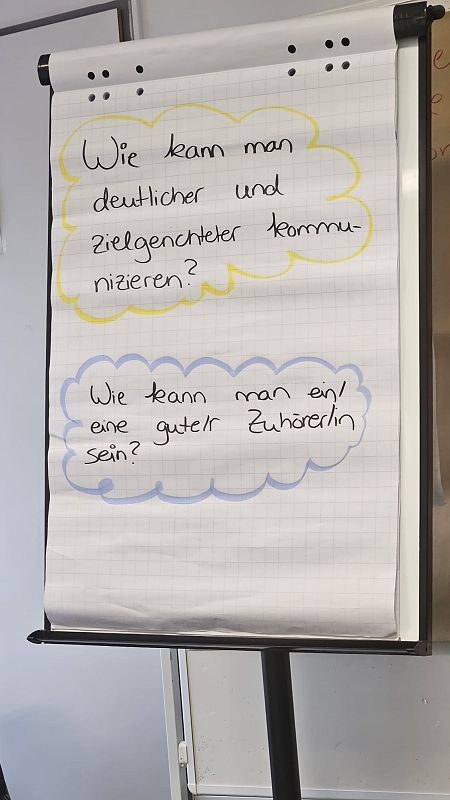 Wie kann man
deutlicher und
zielgerichteter kommu-
nizieren?
Wie kann man ein/
eine gute/r Zuhörer/in
sein?